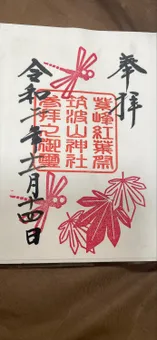 奉拝
峰紅葉
筑波山神社
参拝之御璽
令和年十一月十四日